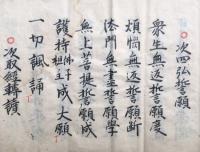 次四弘誓願
衆生無邊誓願度
煩惱無邊誓願断
法門無盡誓願學
無上菩提誓願成
護持佛子成大願
一切諷誦
次取經轉讀